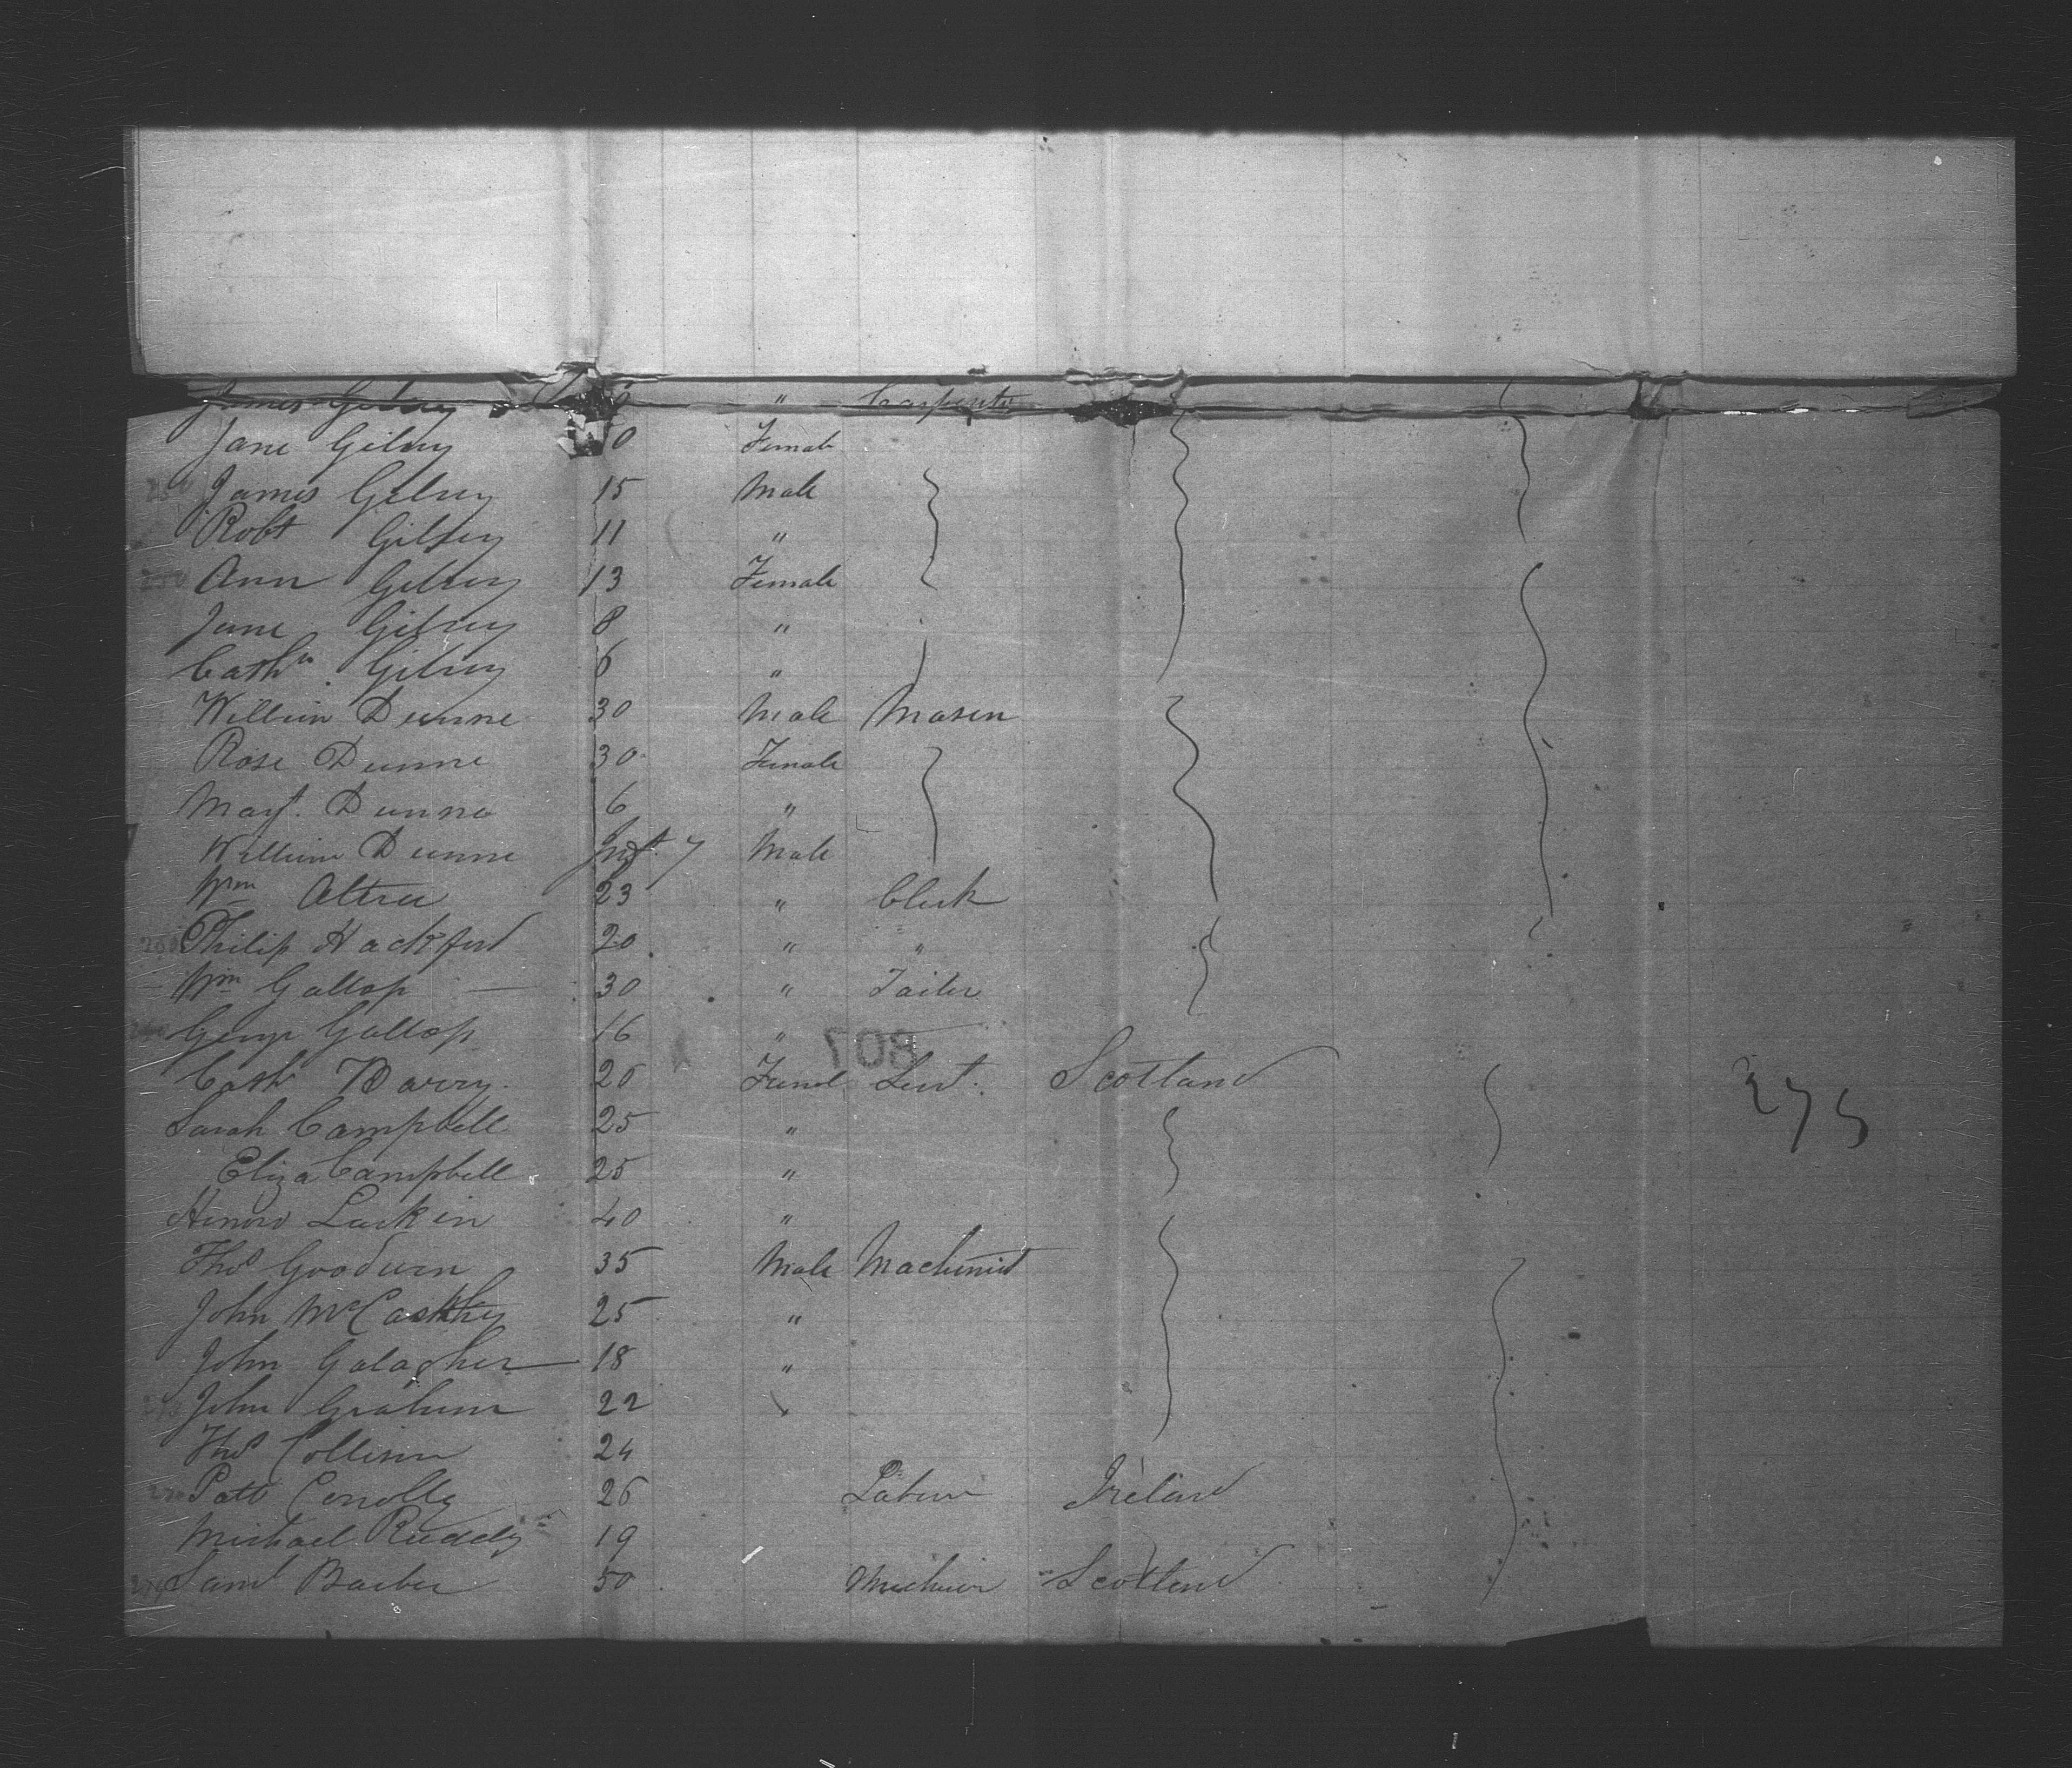 James Gilroy " Carpenter
Jane Gilroy 0 Female
James Gilroy 15 Male
Robt Gilroy 11 "
Ann Gilroy 13 Female
Jane Gilroy 8 "
Cathn Gilroy 6 "
William Dunne 30 Male Mason
Rose Dunne 30 Female
Margt. Dunne 6 "
William Dunne Inft. 7 Male
Wm 23 " Clerk
Philip Hackford 20 " "
Wm Gallop 30 " Tailor
George Gallop 16 "
807
Cath 26 Femal Scotland
Sarah Campbell 25 "
275
Eliza Campbell 25 "
Larkin 40 "
Thos Goodwin 35 Male Machinist
John 25 "
John Galagher 18 "
John Graham 22 "
Thos Collison 24
Patk Conolly 26 Labour Ireland
Michael Ruddy 19
Saml Barber 50 Scotland